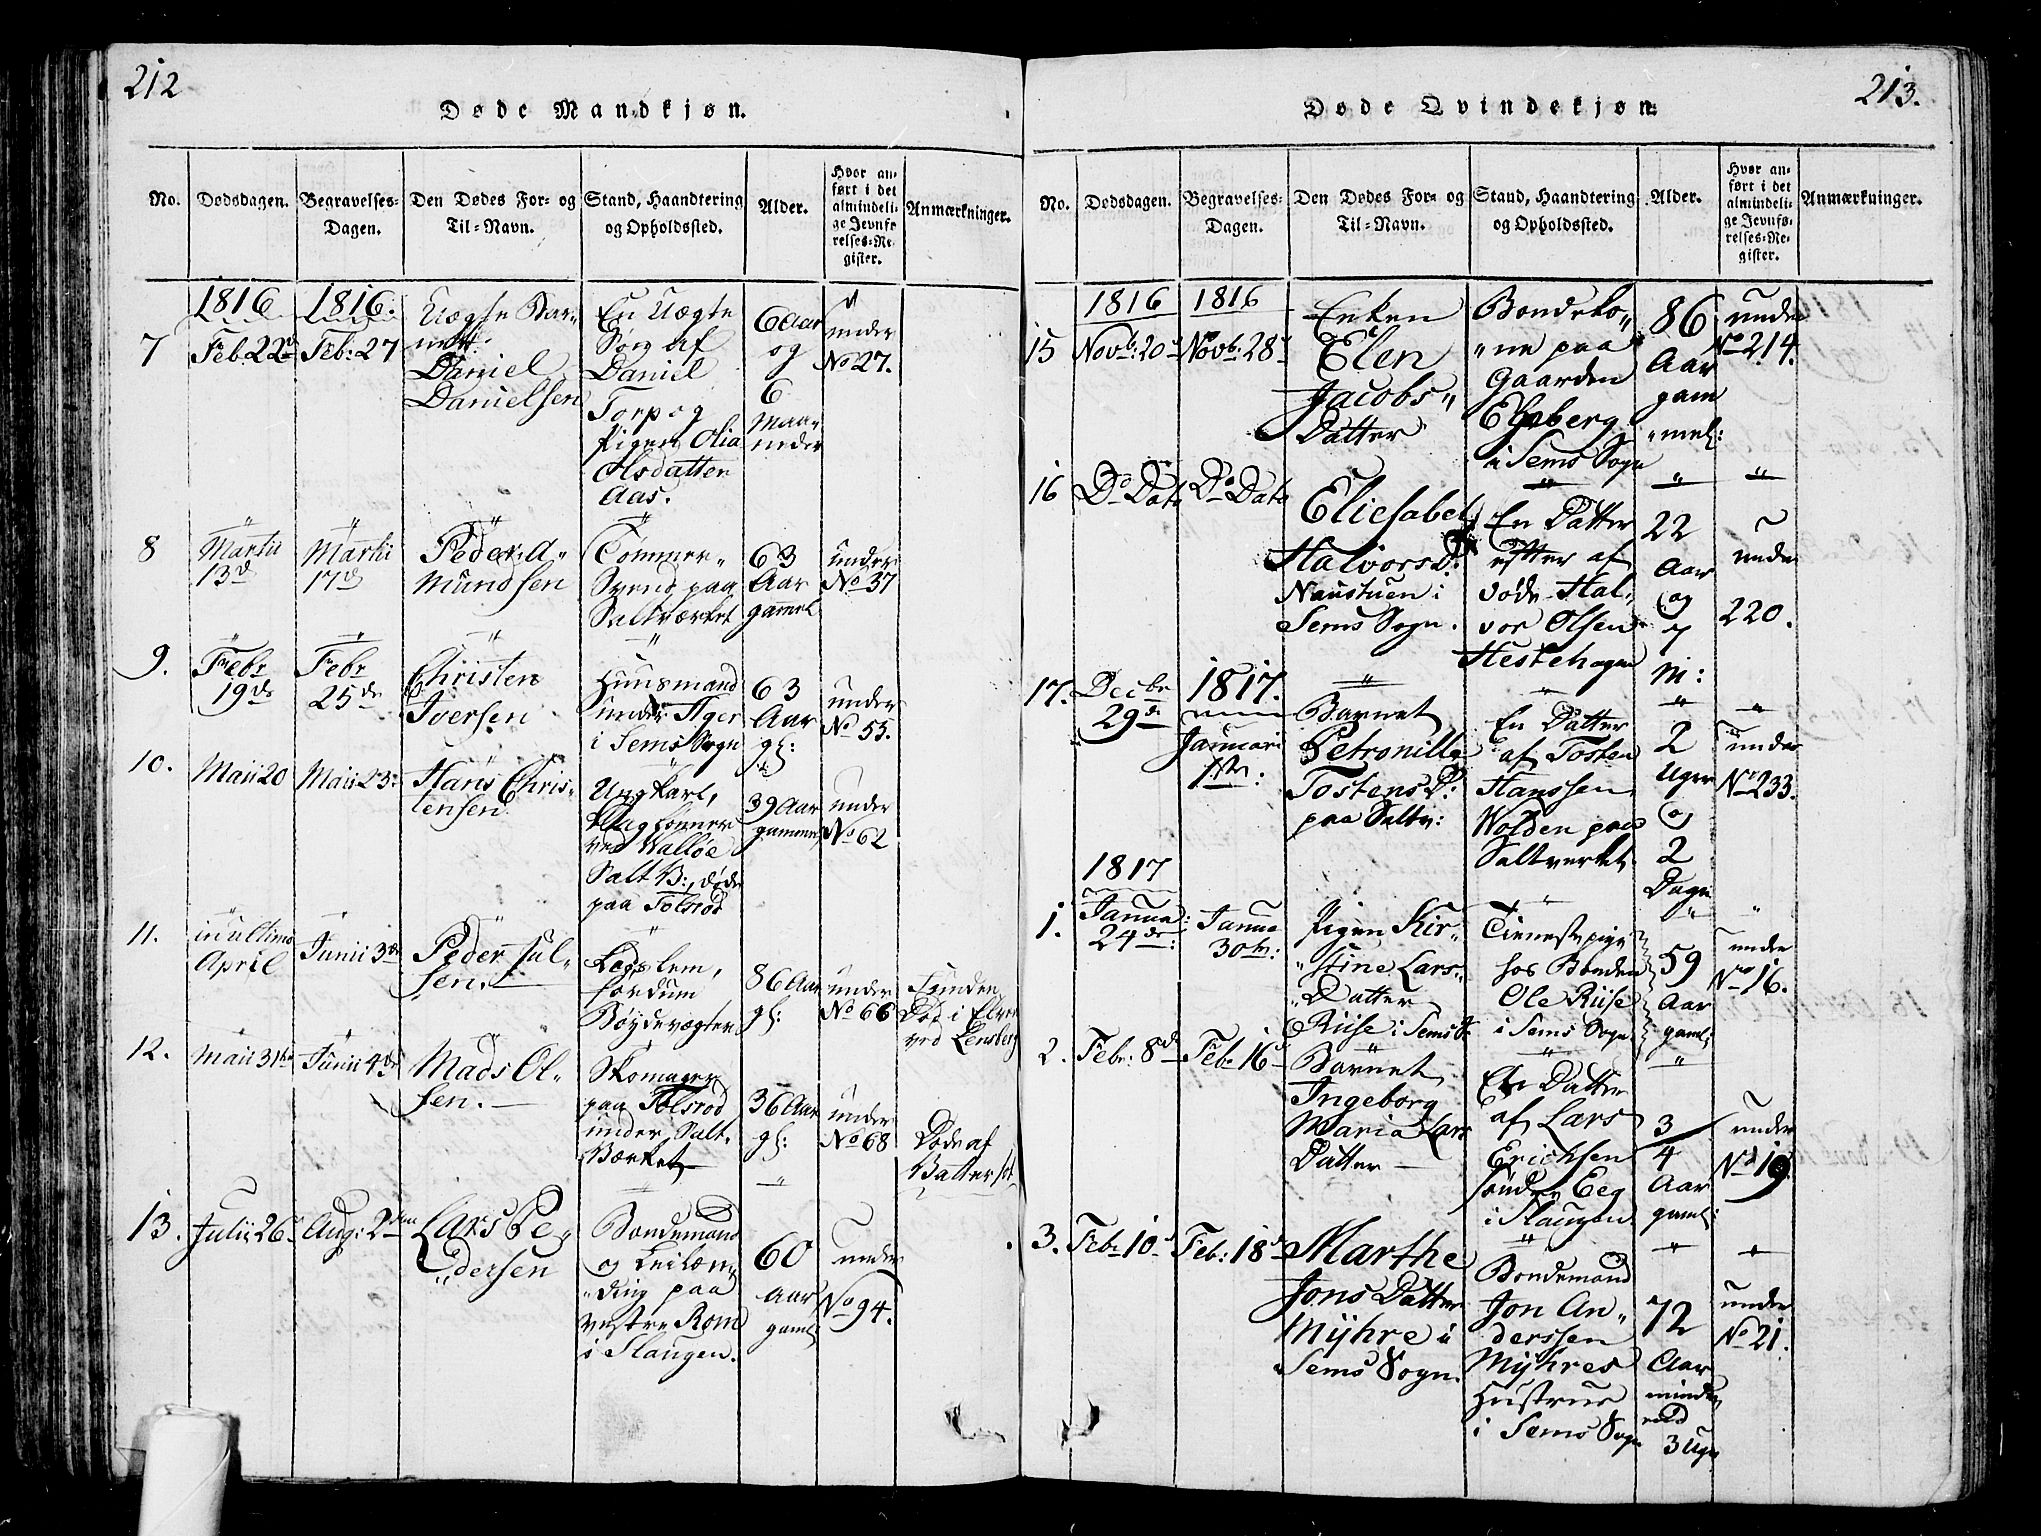 212
Døde Mandkjøn.
No.
Dødsdagen.
Begravelses-
Dagen.
Den Dødes For- og
Til-Navn.
Stand, Haandtering
og Opholdssted.
Alder.
Hvor an-
ført i det
almindeli-
ge Jevnfø-
relses-Re-
gister.
Anmærkninger.
7
1816
Feb 22d
1816.
Feb: 27
Uægte Bar-
net
Daniel
Danielsen
En Uægte
Søn af
Daniel
Torp og
Pigen Olia
Olsdatter
Aas.
6 Aar
og
6
Maa-
neder
under
No 27.
8
Martii
13d
Martii
17d
Peder A-
mundsen
Tømmer-
Svend paa
Saltværket
63
Aar
gammel
under
No 37
9.
Febr
19de
Febr
25de
Christen
Iversen
Huusmand
under Ager
i Sems Sogn
63
Aar
gl:
under
No 55.
10.
Maii 20
Maii 23
Hans Chris-
tensen
Ungkarl,
ved Walløe
Salt V:, døde
paa Tolsrød
39 Aar
gammel
under
No 62
11.
in ultimo
April
Junii 3de
Peder Jul-
sen.
Legslem,
fordum
Bøydevægter
86 Aar
gl:
under
No 66
Funden
Død i Elven
ved Tensberg
12.
Maii 31te
Junii 4de
Mads Ol-
sen.
Skomager
paa Tolsrød
under Salt-
Værket
36 Aar
gl:
under
No 68
Døde af
13.
Julii 26
Aug: 2den
Lars Pe-
dersen
Bondemand
og Leilæn-
ding paa
vestre Rom
i Slaugen.
60
Aar
gaml:
under
No 94.
213.
Døde Qvindekjøn.
No.
Dødsdagen.
Begravelses-
Dagen.
Den Dødes For- og
Til-Navn.
Stand, Haandtering
og Opholdssted.
Alder.
Hvor an-
ført i det
almindeli-
ge Jevnfø-
relses-Re-
gister.
Anmærkninger.
15
1816
Novb: 20
1816
Novb: 28
Enken
Elen
Jacobs"
Datter
Bondeko"
"ne paa
Gaarden
Elgsberg
i Sems Sogn
86
Aar
gam
"mel:
under
No 214.
16
Do Dato
Do Dato
Eliesabet
Halvorsd:
Naustuen i
Sems Sogn.
En Datter
efter af
døde Hal-
vor Olsen
Hestehagen
22
Aar
og
7
M:
under
220.
17.
Decbr
29de
1817.
Januari
1ste:
Barnet
Petronille
Tostens D:
paa Saltv:
En Datter
af Tosten
Hanssen
Wolden paa
Saltverket
2
Uger
og
2
Dage
under
No 233.
1.
1817
Janua:
24de:
Janua
30te:
Pigen Kir-
"stine Lars-
"Datter
Riise i Sems S
Tieneste pige
hos Bonden
Ole Riise
i Sems Sogn
59
Aar
gaml:
under
No 16.
2.
Febr: 8d
Feb 16
Barnet
Ingeborg
Maria Lars
Datter
En Datter
af Lars
Erichsen
søndre Eeg
i Slaugen
3/4
Aar
gaml:
under
No 19
3.
Feb 10
Feb: 18
Marthe
Jons Datter
Myhre i
Sems Sogn.
Bondemand
Jon An-
derssen
Myhres
Hustrue
i Sems Sogn
72
Aar
mindre
end
3 Uger
under
No 21.